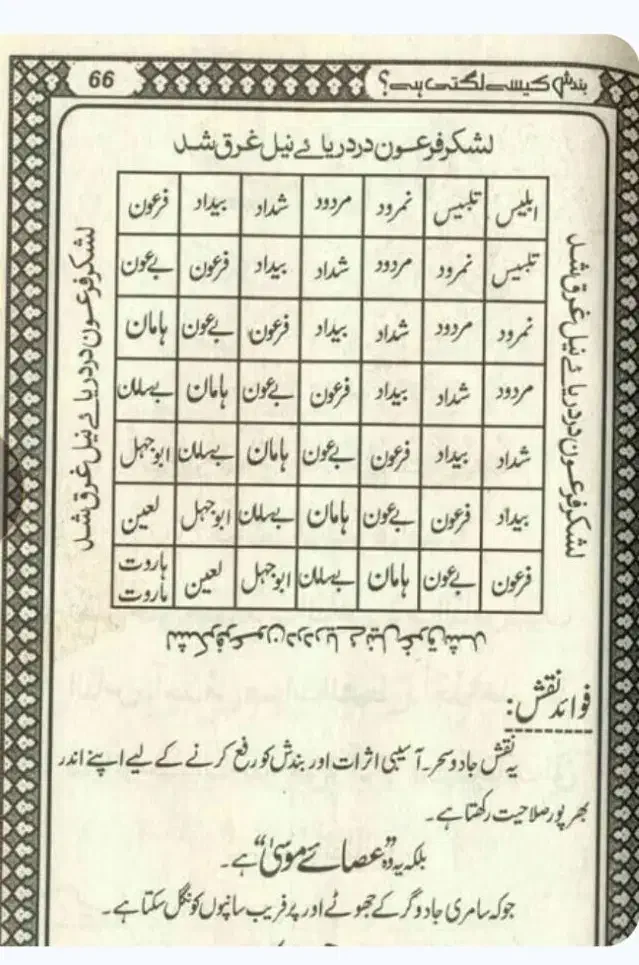 بندش کیسے لگتی ہے؟
66
لشکر فرعون در دریائے نیل غرق شد
لشکر فرعون در دریائے نیل غرق شد
لشکر فرعون در دریائے نیل غرق شد
ابلیس تلبیس نمرود مردود شداد بیداد فرعون
تلبیس نمرود مردود شداد بیداد فرعون بےعون
نمرود مردود شداد بیداد فرعون بےعون ہامان
مردود شداد بیداد فرعون بےعون ہامان بےسامان
شداد بیداد فرعون بےعون ہامان بےسامان ابوجہل
بیداد فرعون بےعون ہامان بےسامان ابوجہل لعین
فرعون بےعون ہامان بےسامان ابوجہل لعین ہاروت ماروت
لشکر فرعون در دریائے نیل غرق شد
فوائد نقش:
یہ نقش جادو سحر۔ آسیبی اثرات اور بندش کو رفع کرنے کے لیے اپنے اندر
بھر پور صلاحیت رکھتا ہے۔
بلکہ یہ وہ "عصائے موسیٰ" ہے۔
جو کہ سامری جادوگر کے جھوٹے اور پر فریب سانپوں کو نگل سکتا ہے۔